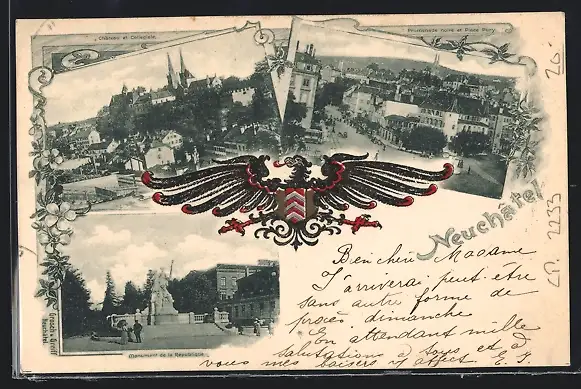 Château et Collégiale.
Promenade noire et Place Pury.
Neuchâtel
Monument de la République
Bien chère Madame
J'arriverai peut-être
sans autre forme de
procès dimanche
En attendant mille
salutations à tous et à
vous mes baisers
20.
2233